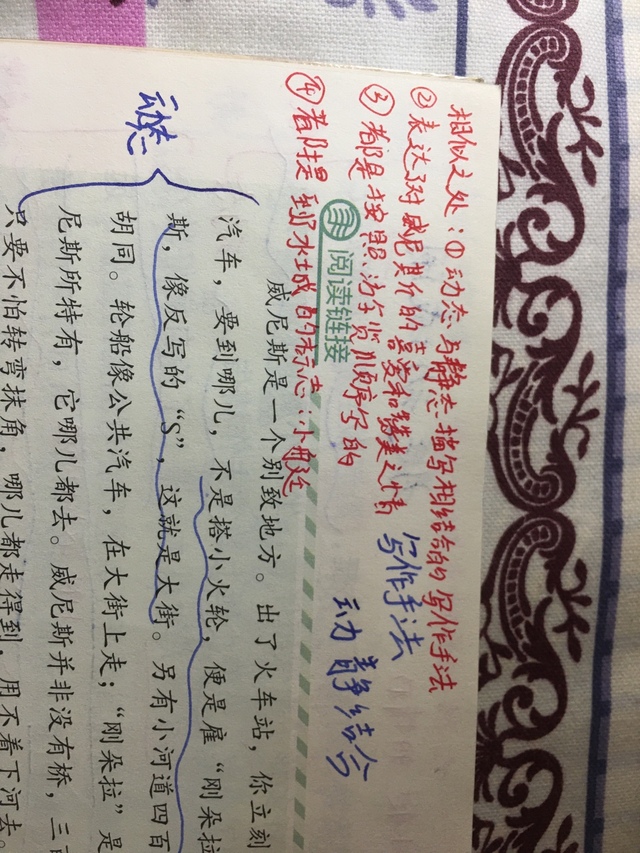 相似之处：①动态与静态描写相结合的写作手法
②表达了对威尼斯的喜爱和赞美之情
③都是按照游览顺序写的
④都提到了水城的标志：小艇
写作手法
动静结合
动态
阅读链接
威尼斯是一个别致地方。出了火车站，你立刻
汽车，要到哪儿，不是搭小火轮，便是雇“刚朵拉
斯，像反写的“S”，这就是大街。另有小河道四百
胡同。轮船像公共汽车，在大街上走；“刚朵拉”是
尼斯所特有，它哪儿都去。威尼斯并非没有桥，三百
只要不怕转弯抹角，哪儿都走得到，用不着下河去。